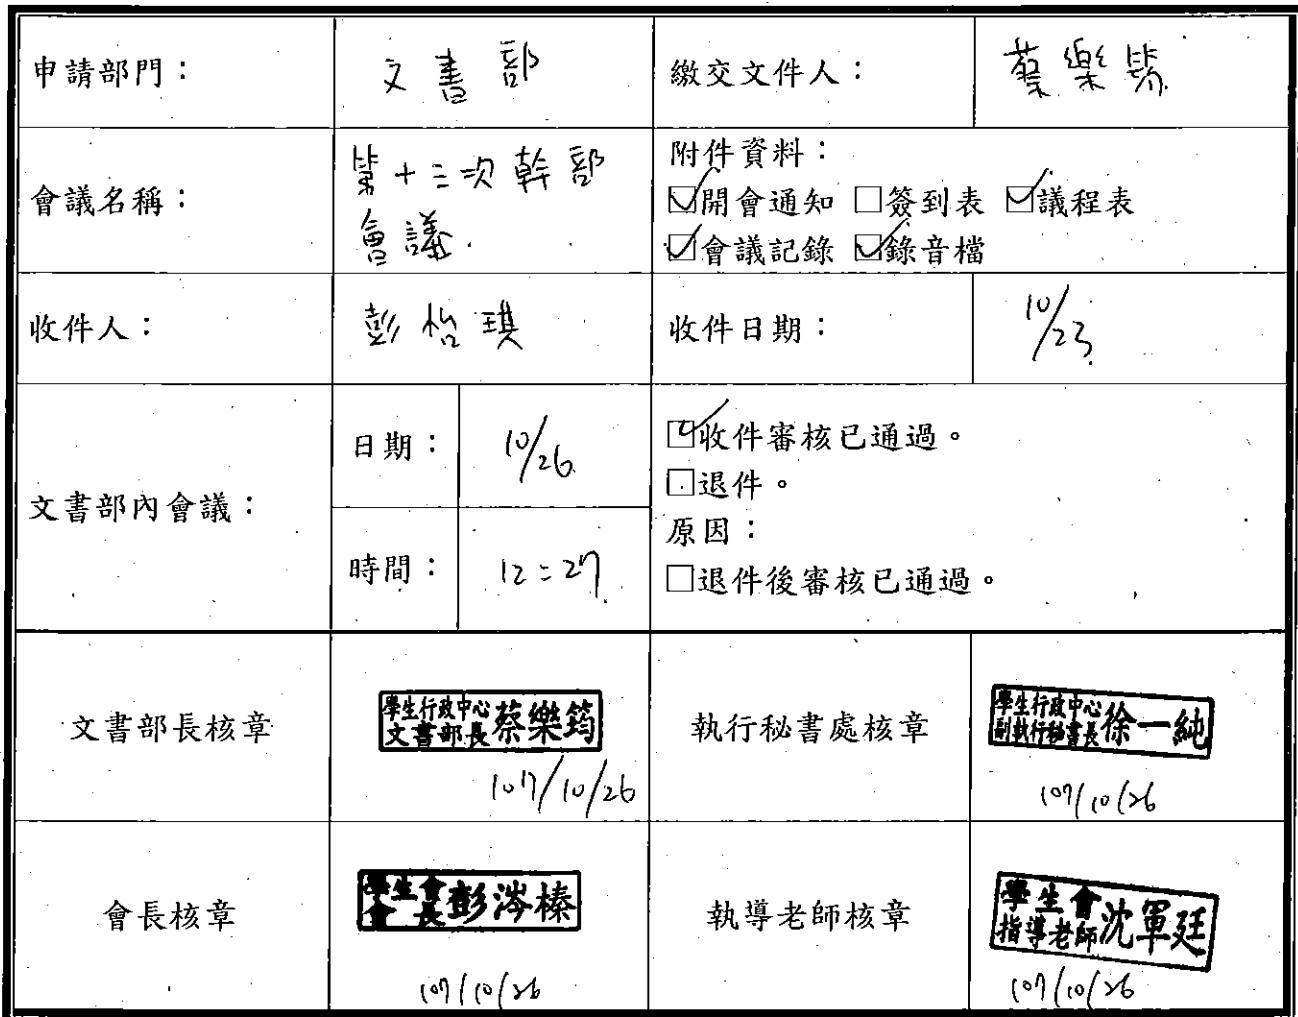 申請部門：
文書部
繳交文件人：
蔡樂筠
會議名稱：
第十三次幹部
會議.
附件資料：
☑開會通知 □簽到表 ☑議程表
☑會議記錄 ☑錄音檔
收件人：
彭怡琪
收件日期：
10/23
文書部內會議：
日期：
10/26
時間：
12:27
☑收件審核已通過。
□退件。
原因：
□退件後審核已通過。
文書部長核章
學生行政中心
文書部長 蔡樂筠
107/10/26
執行秘書處核章
學生行政中心
副執行秘書長 徐一純
107/10/26
會長核章
學生會
會長 彭涔榛
107/10/26
執導老師核章
學生會
指導老師 沈軍廷
107/10/26